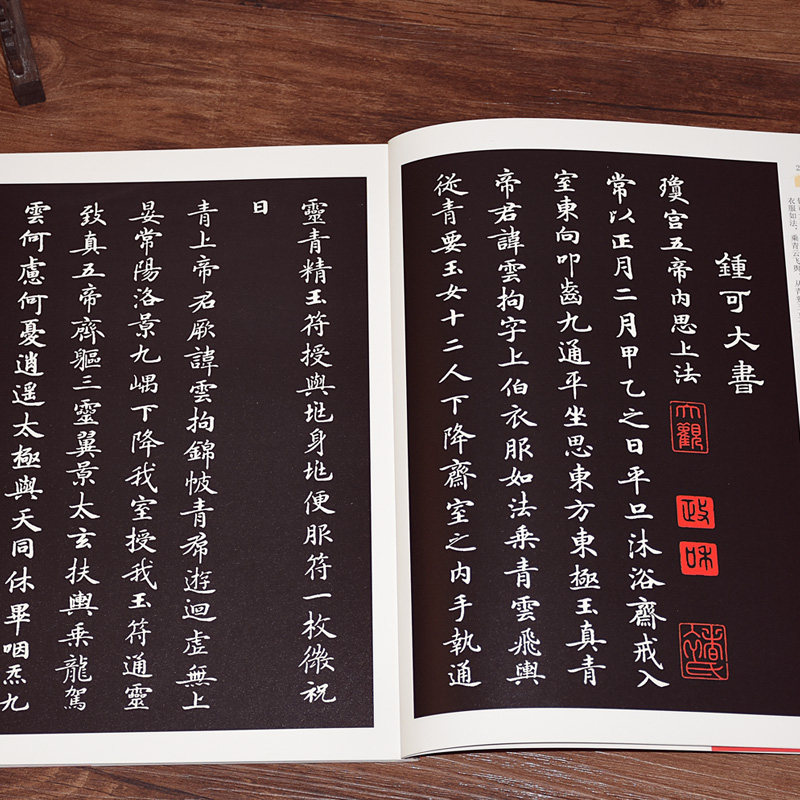 衣服如法，乘青云飞
鍾可大書
瓊宫五帝内思上法
大觀
政和
常以正月二月甲乙之日平旦沐浴齋戒入
室東向叩齒九通平坐思東方東極玉真青
帝君諱雲拘字上伯衣服如法乘青雲飛輿
從青要玉女十二人下降齋室之内手執通
靈青精玉符授與兆身兆便服符一枚微祝
曰
青上帝君厥諱雲拘錦帔青帬遊迴虚無上
晏常陽洛景九嵎下降我室授我玉符通靈
致真五帝齊軀三靈翼景太玄扶輿乘龍駕
雲何慮何憂逍遥太極與天同休畢咽炁九